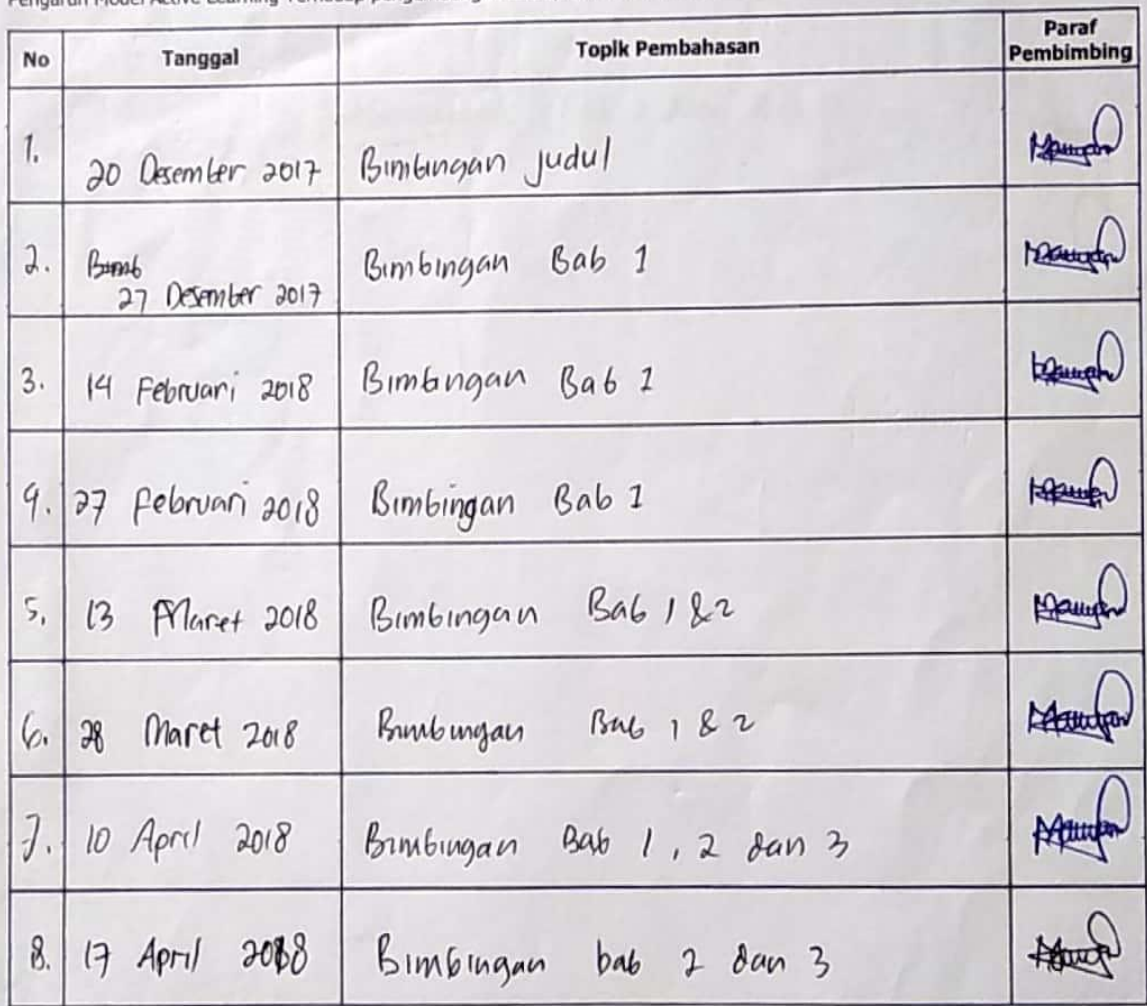 No Tanggal Topik Pembahasan Paraf Pembimbing
1. 20 Desember 2017 Bimbingan judul
2. 27 Desember 2017 Bimbingan Bab 1
3. 14 Februari 2018 Bimbngan Bab 1
4. 27 Februari 2018 Bimbingan Bab 1
5. 13 Maret 2018 Bimbingan Bab 1 & 2
6. 28 Maret 2018 Bimbingan Bab 1 & 2
7. 10 April 2018 Bimbingan Bab 1, 2 dan 3
8. 17 April 2018 Bimbingan bab 2 dan 3